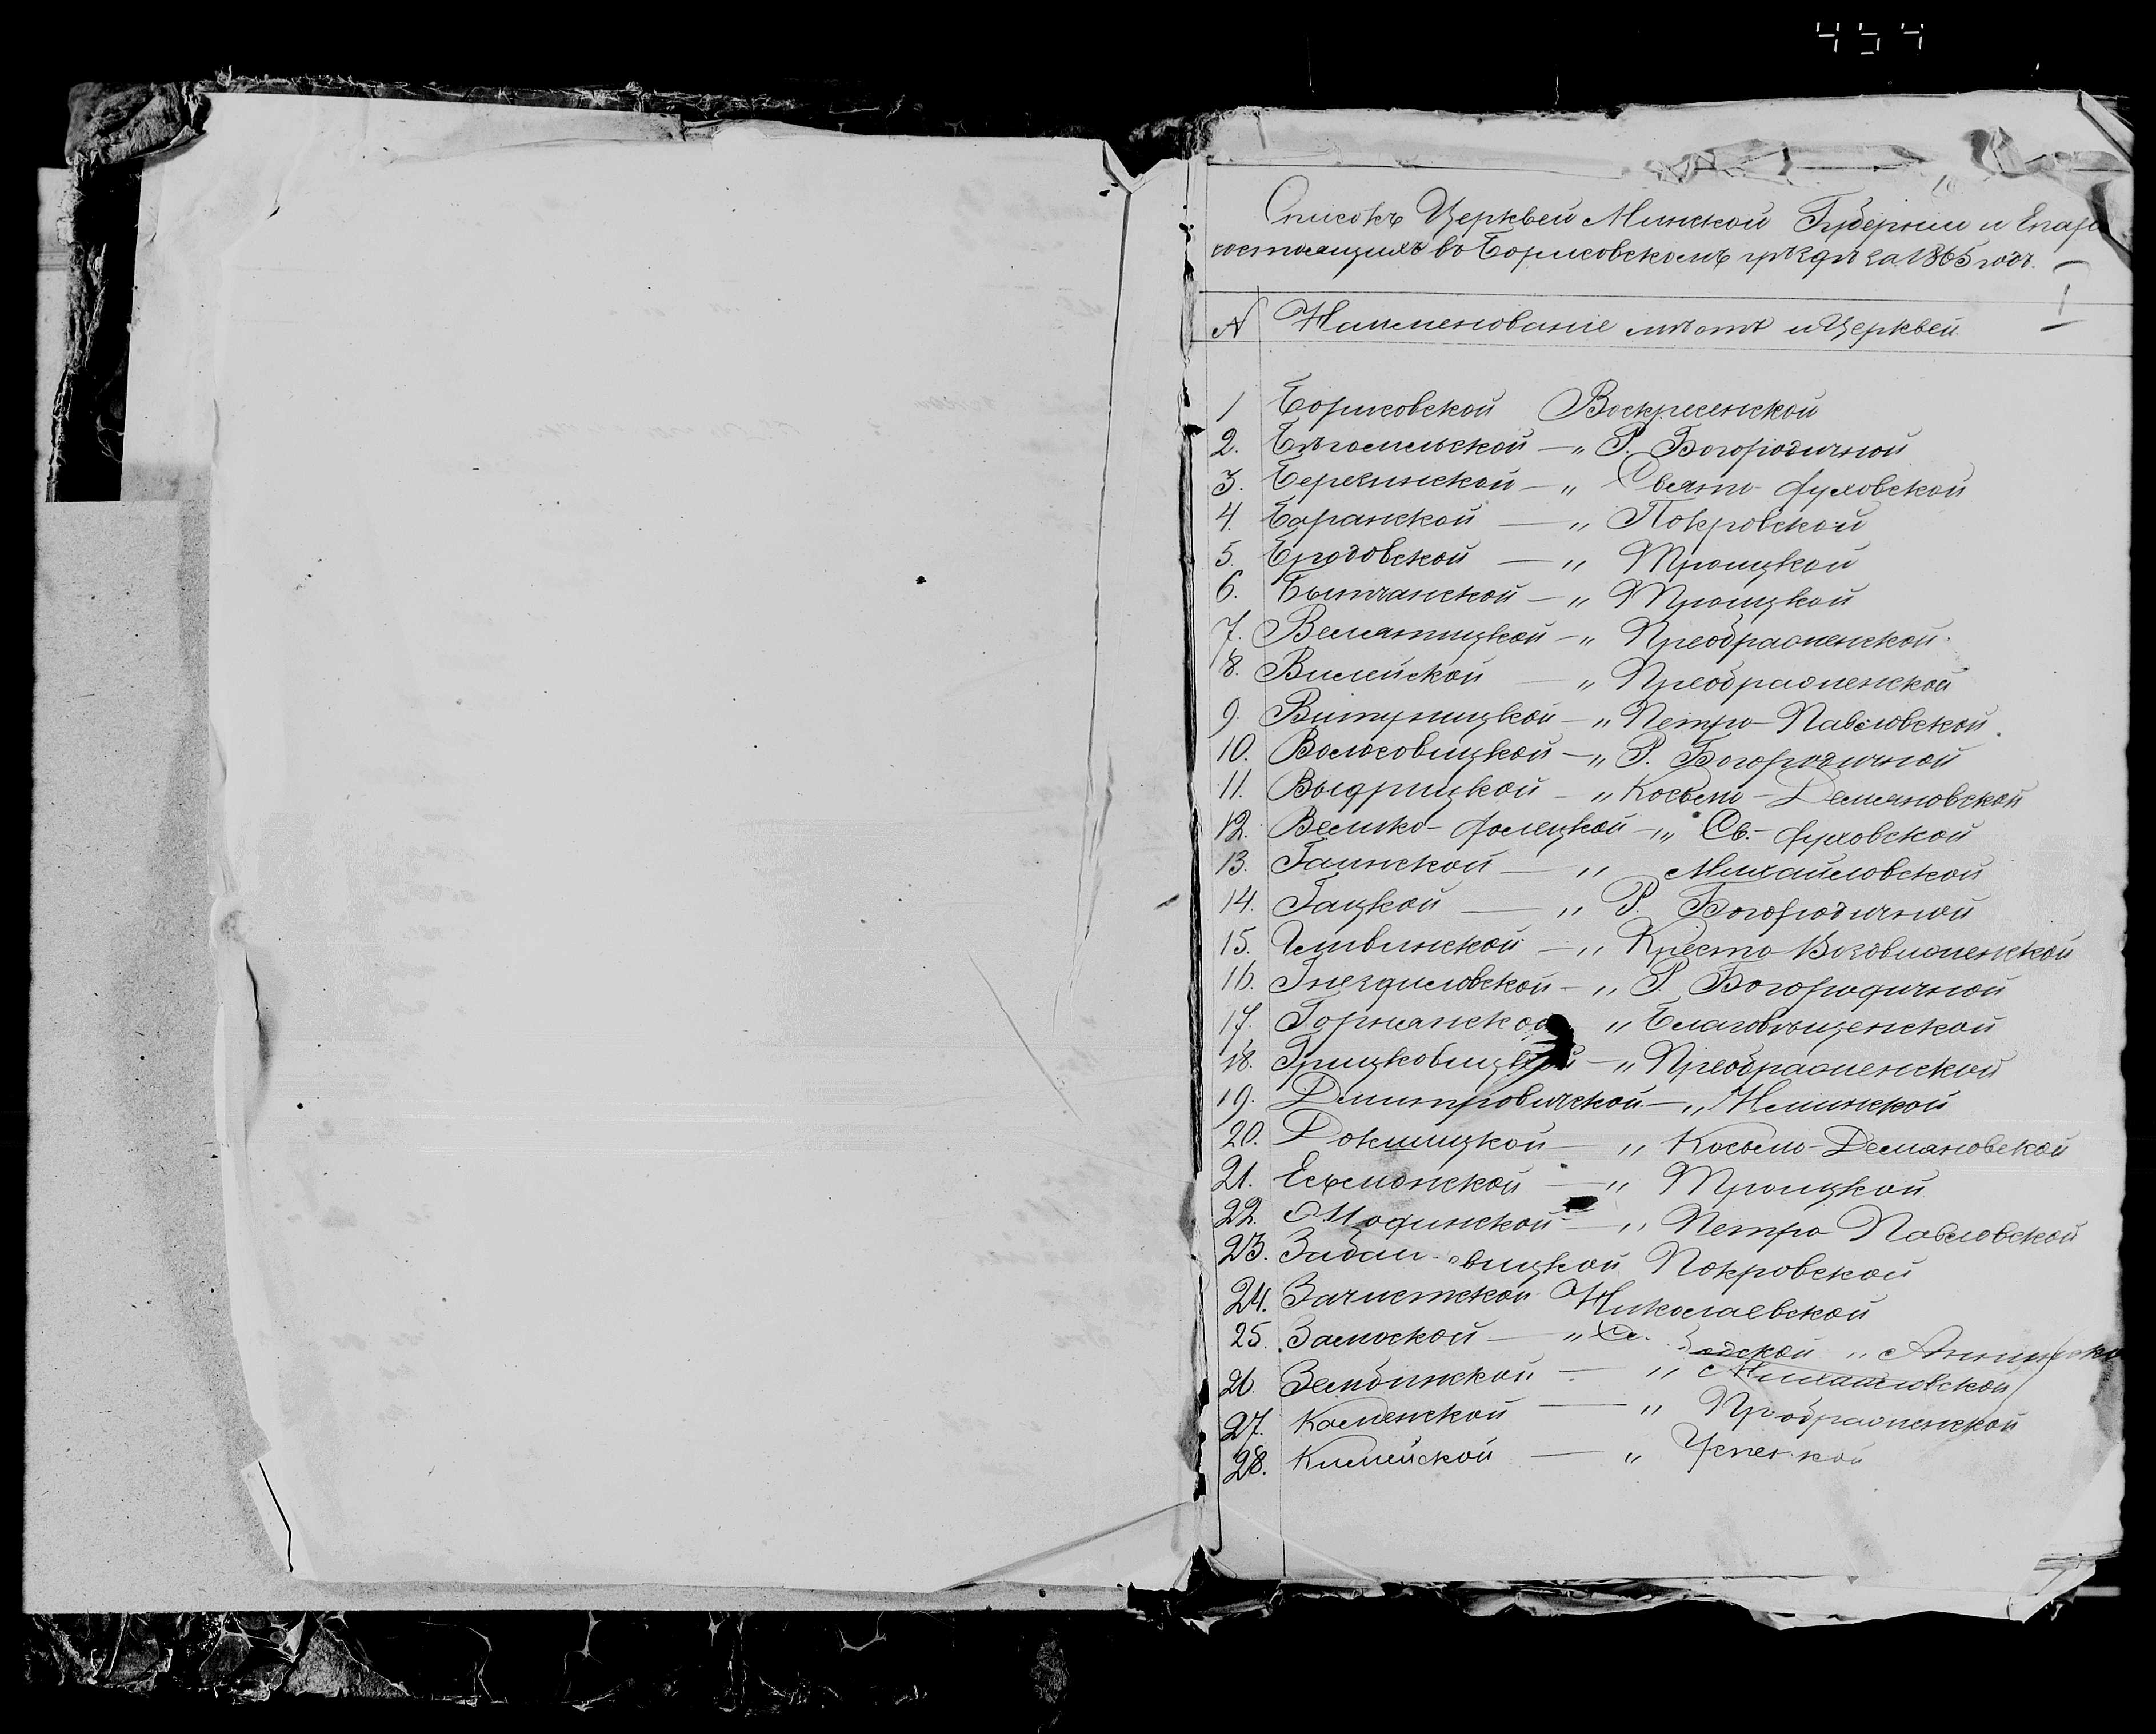 454
Списокъ Церквей Минской Губерніи и Епар
состоящихъ въ Борисовскомъ уѣздѣ за 1865 годъ.
№ Наименованіе мѣстъ и Церквей.
1 Борисовской Воскресенской
2. Бѣгомльской — „ Р. Богородичной
3. Березинской — „ Свято-Духовской
4. Баранской — „ Покровской
5. Бродовской — „ Троицкой
6. Бытчанской — „ Троицкой
7. Велятицкой — „ Преображенской
8. Вилейской — „ Преображенской
9. Витуницкой — „ Петро-Павловской
10. Волосовицкой — „ Р. Богородичной
11. Выдрицкой — „ Косьмо-Демяновской
12. Велико-Долецкой — „ Св.-Духовской
13. Гаинской — „ Михайловской
14. Гацкой — „ Р. Богородичной
15. — „ Кресто Воздвиженской
16. Гнездиловской — „ Р. Богородичной
17. „ Благовѣщенской
18. Грицковицкой — „ Преображенской
19. Димитровичской — „ Ильинской
20. Докшицкой — „ Косьмо-Демяновской
21. Есьмонской — „ Троицкой
22. — „ Петро Павловской
23. Покровской
24. Зачистской Николаевской
25. Замоской — „
26. Зембинской — „ Михайловской
27. Каменской — „ Пр ображенской
28. Килейской — „ Успен кой